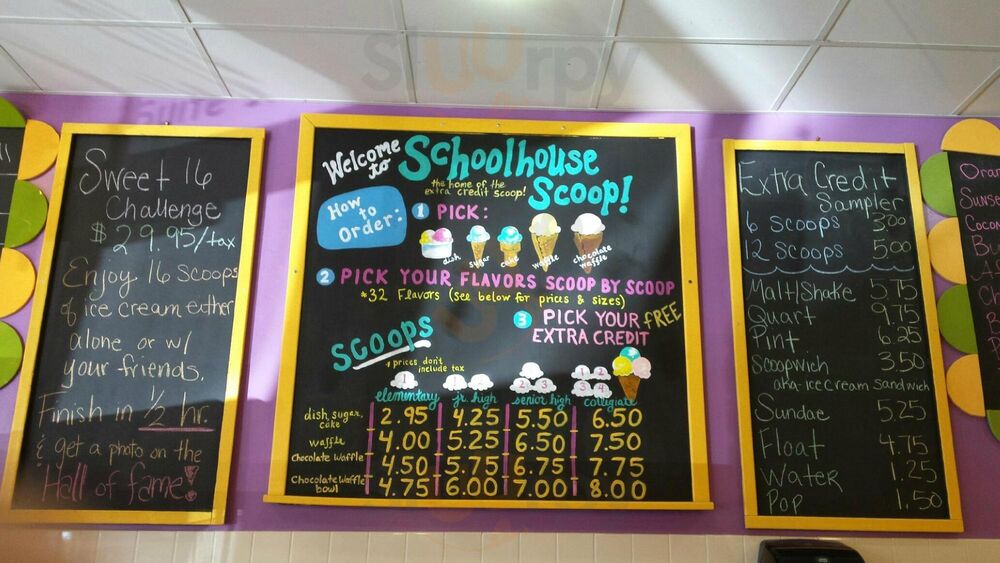 Slurpy
Sweet 16
Challenge
$29.95/tax
Enjoy 16 scoops
of ice cream either
alone or w/
your friends.
Finish in 1/2 hr.
& get a photo on the
Hall of fame!
Welcome
to
Schoolhouse
Scoop!
the home of the
extra credit scoop!
How
to
Order:
1 PICK:
dish sugar cake waffle chocolate
waffle
2 PICK YOUR FLAVORS SCOOP BY SCOOP
*32 Flavors (see below for prices & sizes)
3 PICK YOUR FREE
EXTRA CREDIT
SCOOPS
* prices don't
include tax
1 1 2 1 2 3 1 2 3 4
elementary jr. high senior high collegiate
dish, sugar, cake 2.95 4.25 5.50 6.50
waffle 4.00 5.25 6.50 7.50
Chocolate Waffle 4.50 5.75 6.75 7.75
Chocolate Waffle bowl 4.75 6.00 7.00 8.00
Extra Credit
Sampler
6 scoops 3.00
12 scoops 5.00
Malt/Shake 5.75
Quart 9.75
Pint 6.25
Scoopwich 3.50
aka ice cream sandwich
Sundae 5.25
Float 4.75
Water 1.25
Pop 1.50